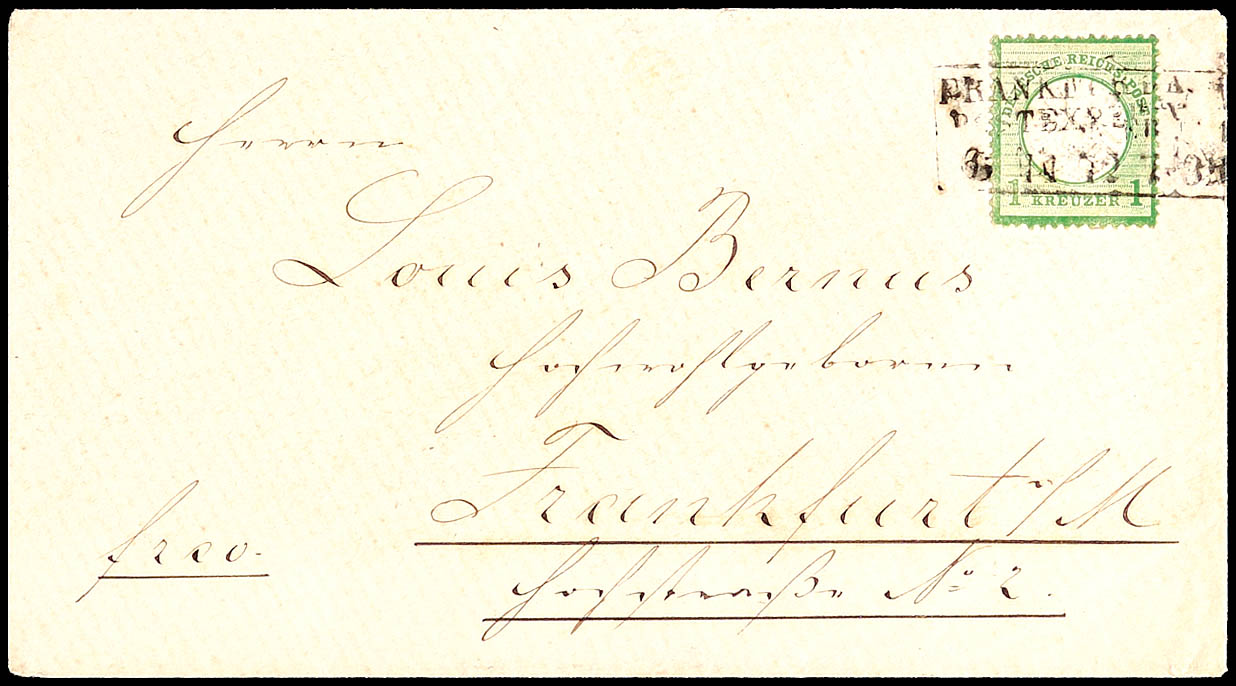 DEUTSCHE REICHS-POST
1 KREUZER 1
Herrn
Louis Bernus
Hochwohlgeboren
Frankfurt a/M
Hochstraße No 2.
frco.